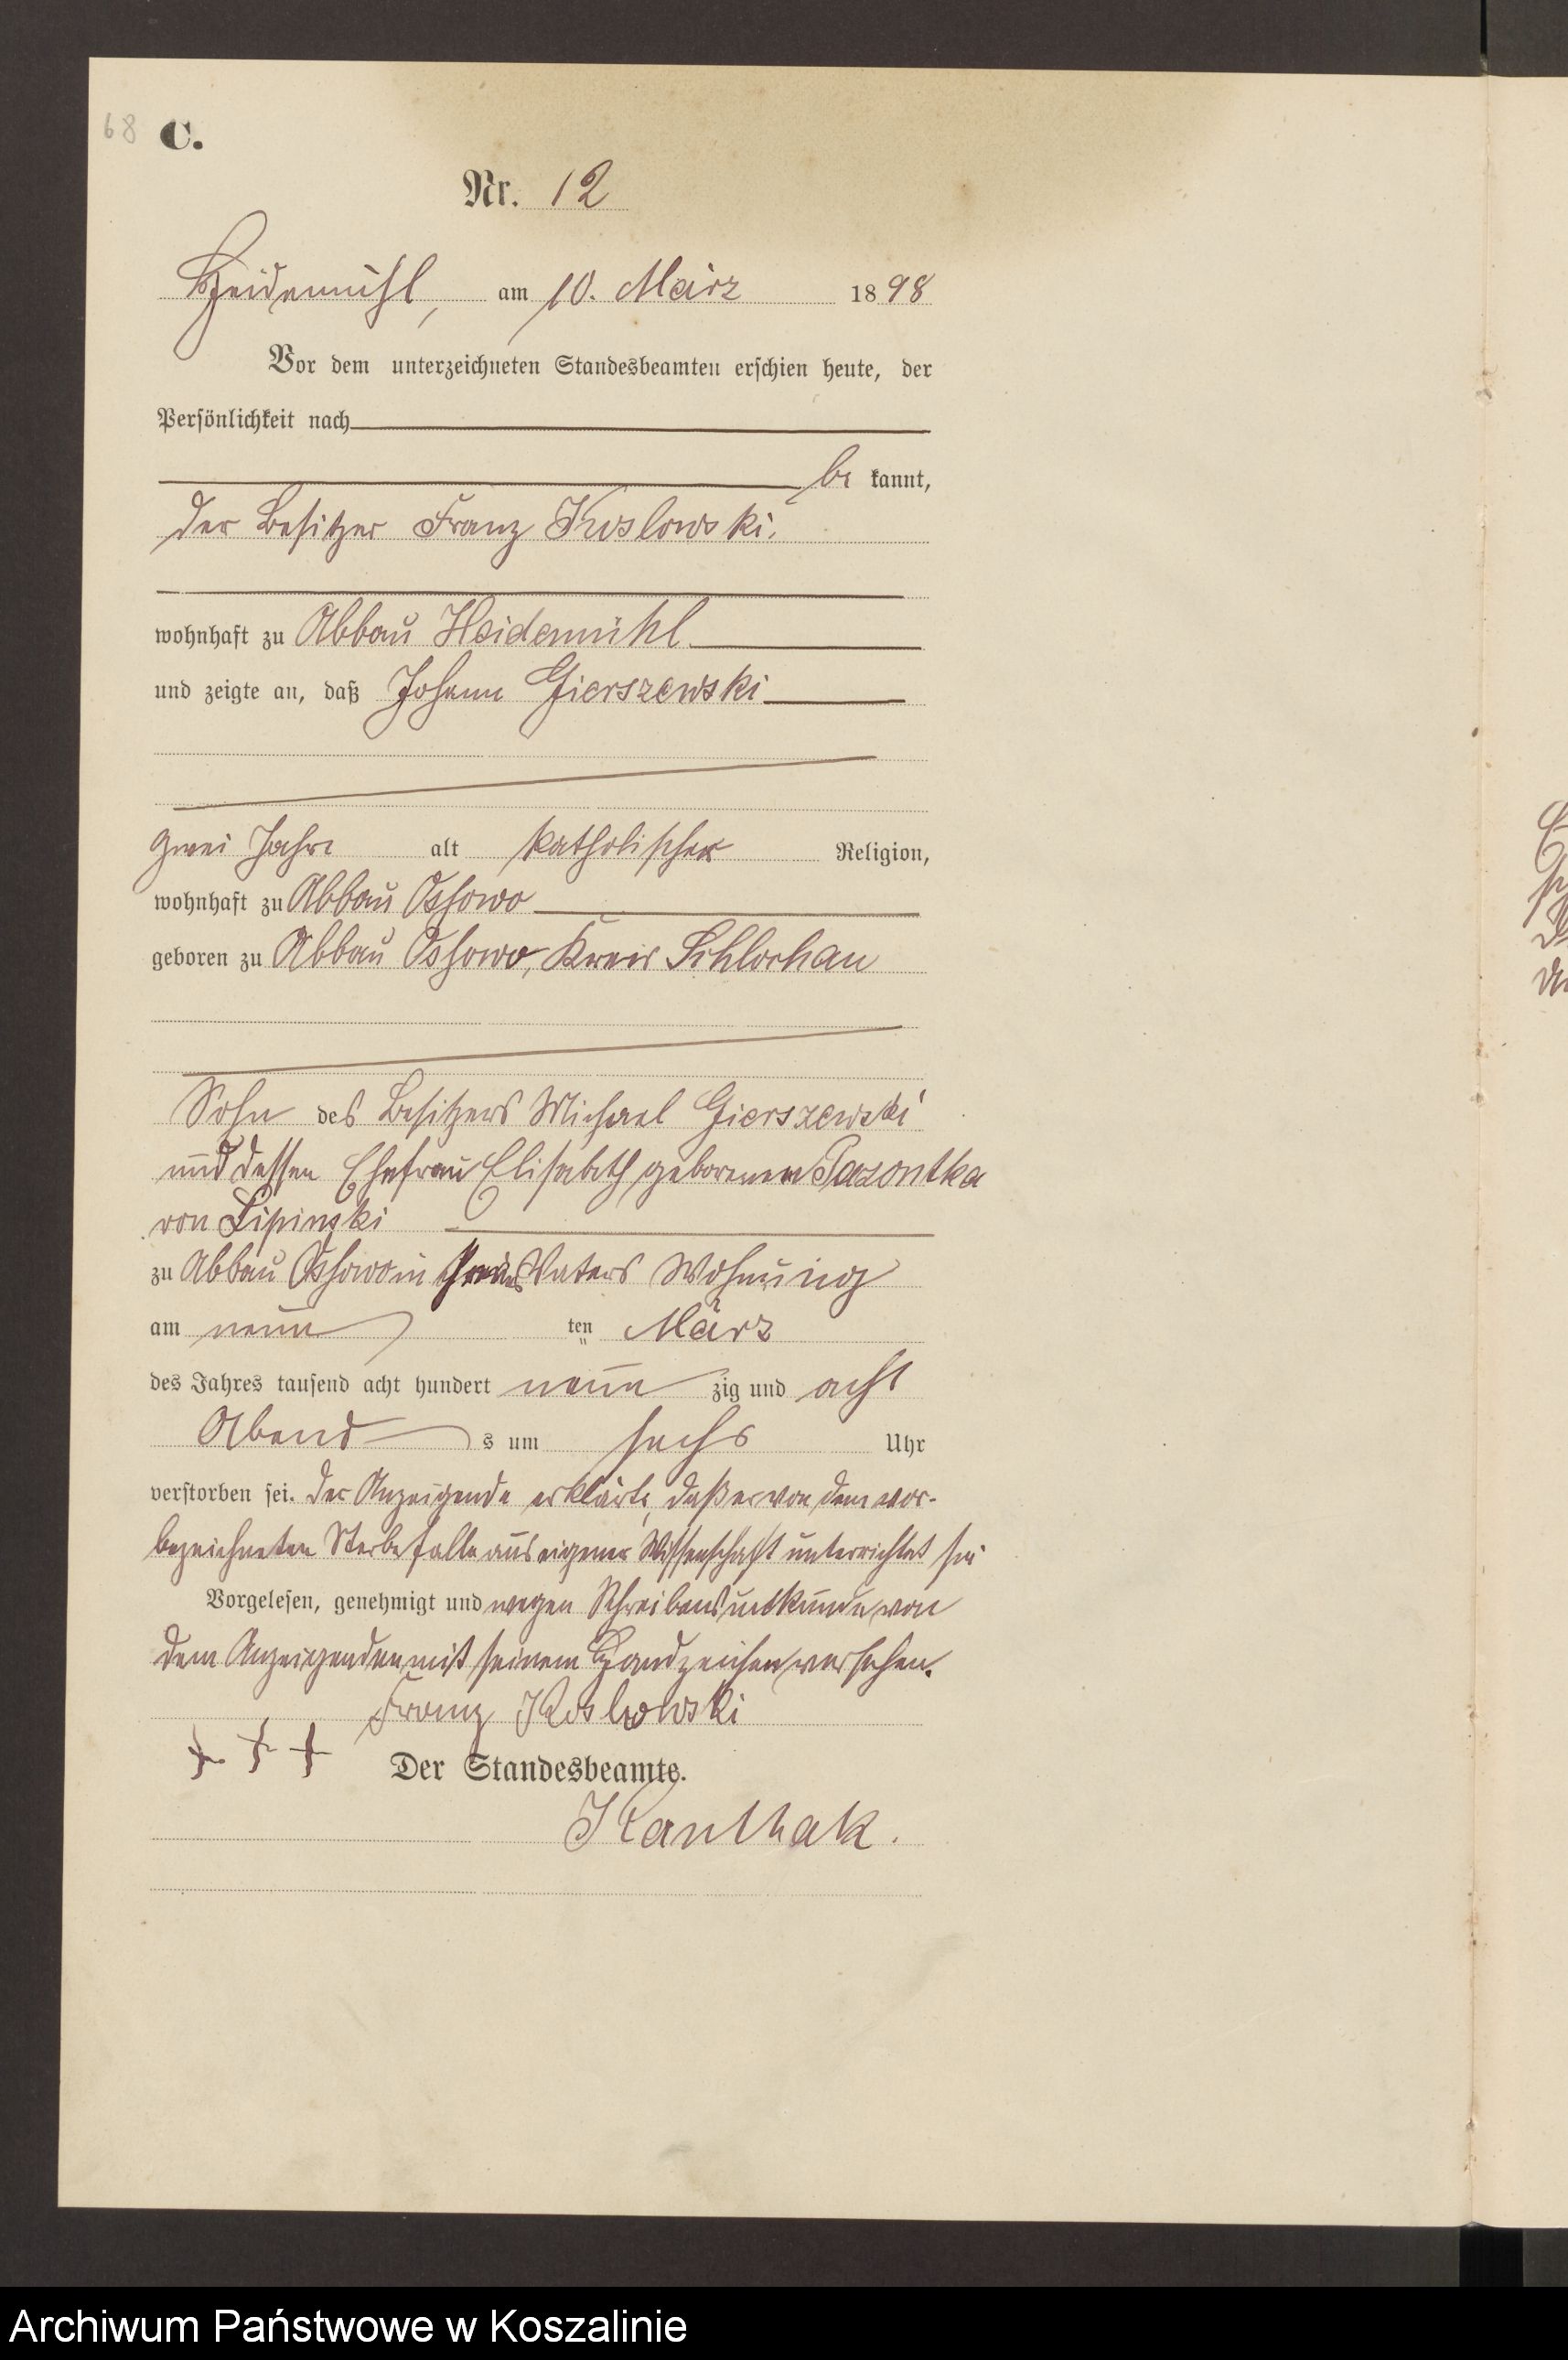 68 C.
Nr. 12
Heidemühl, am 10. März 1898
Vor dem unterzeichneten Standesbeamten erschien heute, der
Persönlichkeit nach
be kannt,
der Besitzer Franz Koslowski.
wohnhaft zu Abbau Heidemühl
und zeigte an, daß Johann Gierszewski
zwei Jahre alt katholischer Religion,
wohnhaft zu Abbau Ossowo
geboren zu Abbau Ossowo, Kreis Schlochau
Sohn des Besitzers Michael Gierszewski
und dessen Ehefrau Elisabeth geborenen Pazontka
von Lipinski
zu Abbau Ossowo in Vaters Wohnung
am neun ten März
des Jahres tausend acht hundert neun zig und acht
Abend s um sechs Uhr
verstorben sei. Der Anzeigende erklärte, daß er von dem vor-
bezeichneten Sterbefalle aus eigener Wissenschaft unterrichtet sei
Vorgelesen, genehmigt und wegen Schreibensunkunde von
dem Anzeigenden mit seinem Handzeichen versehen.
Franz Koslowski
+ + +
Der Standesbeamte.
Kanthak.
Archiwum Państwowe w Koszalinie